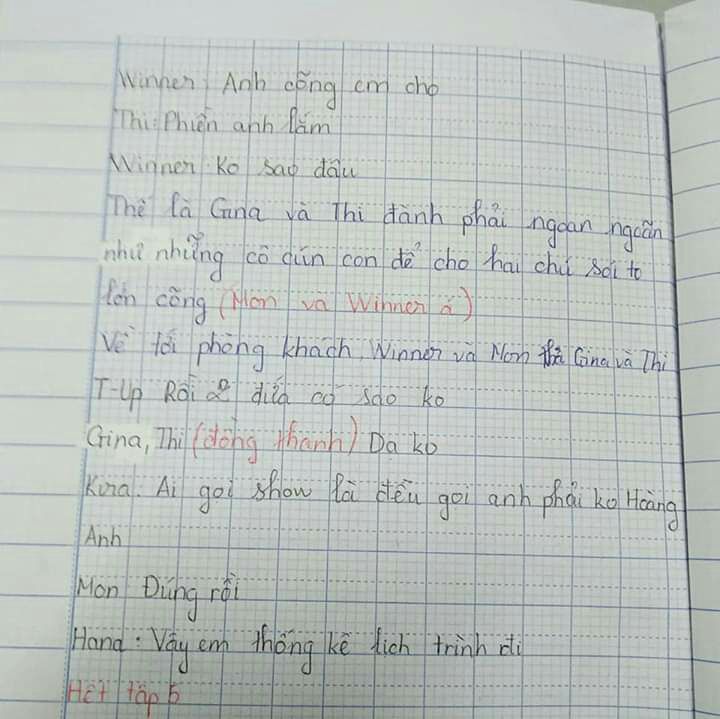 Winner: Anh cõng em cho
Thi: Phiền anh lắm
Winner: Ko sao đâu
Thế là Gina và Thi đành phải ngoan ngoãn
như những cô cún con để cho hai chú sói to
lớn cõng (Mon và Winner á)
Về tới phòng khách, Winner và Mon thả Gina và Thi
T-Up Rồi 2 đứa có sao ko
Gina, Thi (đồng thanh) Dạ ko
Kira: Ai gọi show là đều gọi anh phải ko Hoàng
Anh
Mon Đúng rồi
Hana: Vậy em thống kê lịch trình đi
Hết tập 5